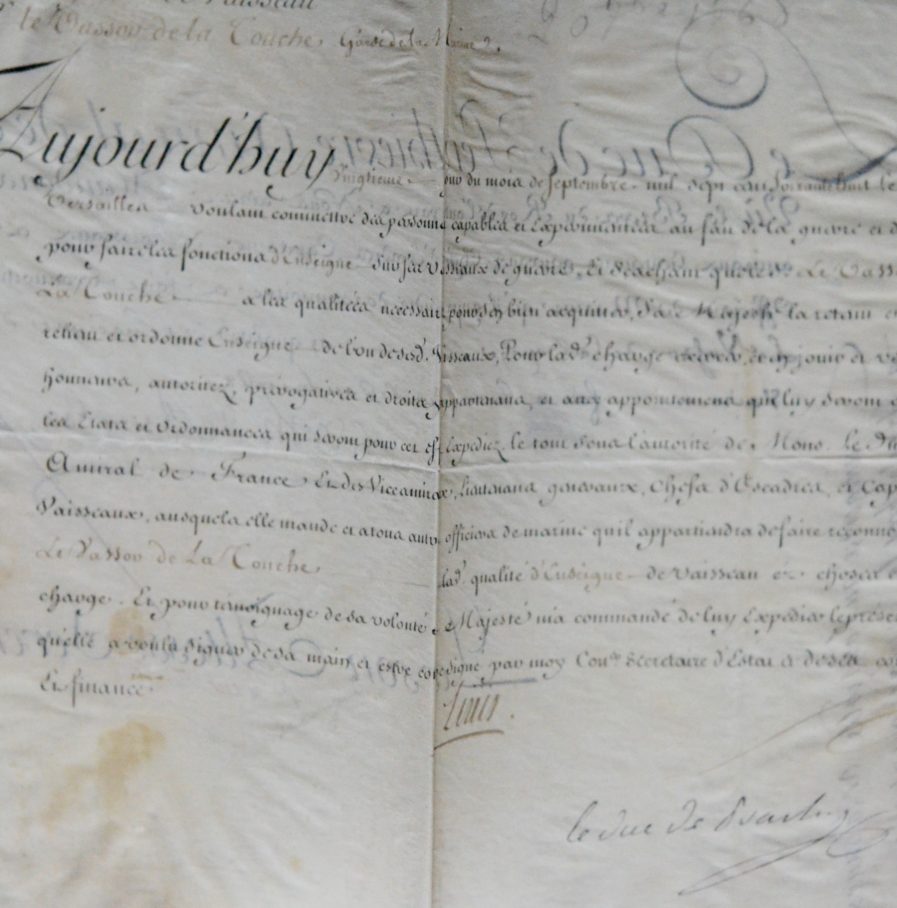 de Vaisseau
le Vassor de la Touche, Garde de la Marine
Aujourd'huy vingtieme jour du mois de septembre mil sept cent soixante huit le
Versailles voulant commettre des personnes capables et Experimentées au fait de la guerre et d
pour faire les fonctions d'Enseigne sur ses Vaisseaux de guerre, Et Sachant que le S. Le Vass
La Touche a les qualitées necessaires pour s'en bien acquitter, Sa Majesté la retenu e
retient et ordonne Enseigne de l'un de sesd. Vaisseaux, Pour lad. charge exercer, et en jouir et
honneurs, autoritez, prérogatives et droits y appartenans, et aux appointemens qui luy seront
les Etats et Ordonnances qui seront pour cet effet Expediez le tout sous l'autorité de Mons. le Du
Amiral de France Et des Viceamiraux, Lieutenans generaux, Chefs d'Escadres, et Cap
Vaisseaux, ausquels elle mande et atous autres officiers de marine quil appartiendra de faire reconno
Le Vassor de La Touche lad. qualité d'Enseigne de vaisseau ez choses
charge. Et pour temoignage de sa volonté Sa Majesté m'a commandé de luy Expedier le prese
qu'elle a voulu signer de sa main et estre contresigné par moy Con.er Secretaire d'Etat et de ses
Et finances.
Louis
le duc de Praslin